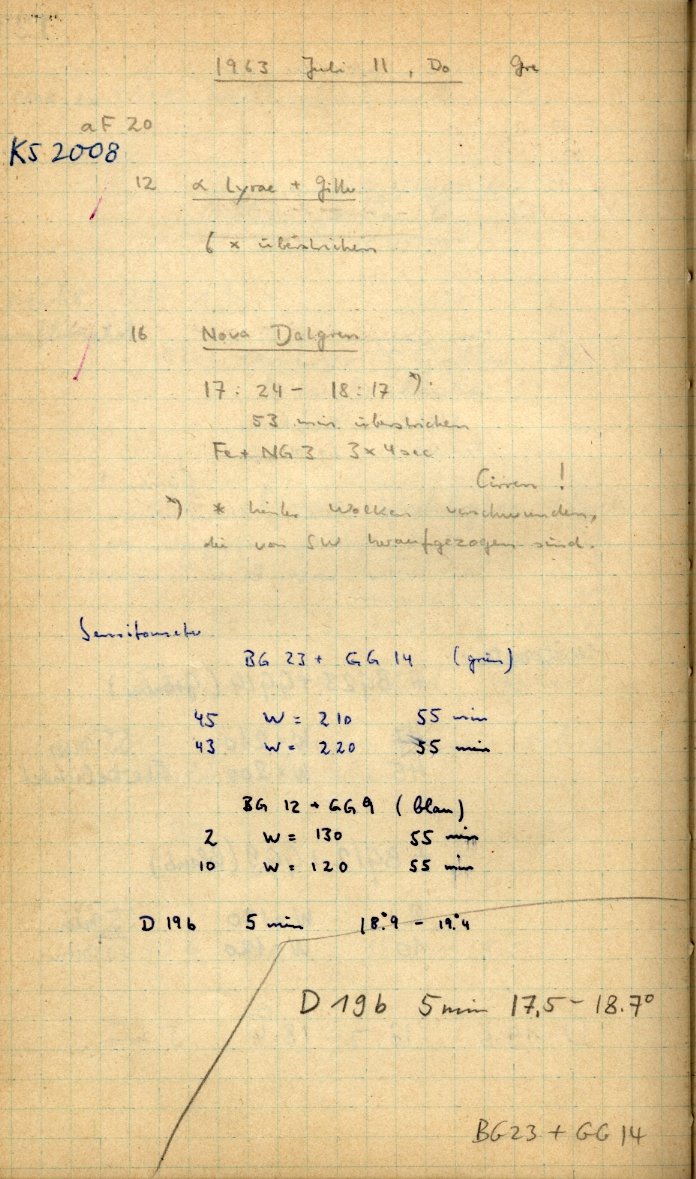 1963 Juli 11, Do Gre
aF 20
KS 2008
12 α Lyrae + Gitter
6 x überstrichen
16 Nova Dalgren
17:24 - 18:17 *).
53 min überstrichen
Fe + NG 3 3 x 4 sec
Cirren !
*) * hinter Wolken verschwunden,
die von SW heraufgezogen sind.
Sensitometer
BG 23 + GG 14 (grün)
45 W = 210 55 min
43 W = 220 55 min
BG 12 + GG 9 (blau)
2 W = 130 55 min
10 W = 120 55 min
D 19b 5 min 18°.9 - 19°.4
D 19b 5 min 17,5 - 18.7°
BG 23 + GG 14